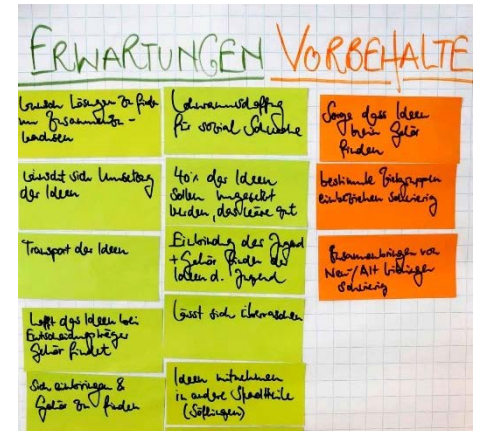 ERWARTUNGEN VORBEHALTE
Wunsch Lösungen zu finden
um zusammenzu-
wachsen
wünscht sich Umsetzung
der Ideen
Transport der Ideen
Hofft das Ideen bei
Entscheidungsträger
Gehör findet
Sich einbringen &
Gehör zu finden
für sozial Schwache
40% der Ideen
sollen umgesetzt
werden, das wäre gut
Einbindung der Jugend
+ Gehör finden der
Ideen d. Jugend
Lässt sich überraschen
Ideen mitnehmen
in andere Stadtteile
(Söflingen)
Sorge dass Ideen
kein Gehör
finden
bestimmte Zielgruppen
einbeziehen schwierig
Zusammenbringen von
Neu/Alt
schwierig